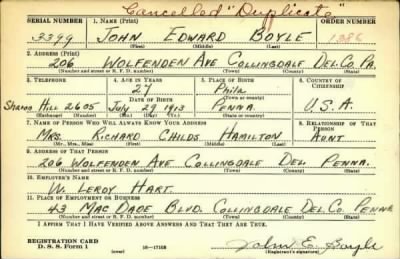 Cancelled "Duplicate"
SERIAL NUMBER 1. NAME (Print) ORDER NUMBER
3399 JOHN EDWARD BOYLE 1386
(First) (Middle) (Last)
2. ADDRESS (Print)
206 WOLFENDEN AVE COLLINGDALE DEL. CO. PA.
(Number and street or R. F. D. number) (Town) (County) (State)
3. TELEPHONE 4. AGE IN YEARS 5. PLACE OF BIRTH 6. COUNTRY OF CITIZENSHIP
27 Phila
(Town or county)
DATE OF BIRTH
Sharon Hill 2605 July 29 1913 PENNA. U.S.A.
(Exchange) (Number) (Mo.) (Day) (Yr.) (State or country)
7. NAME OF PERSON WHO WILL ALWAYS KNOW YOUR ADDRESS 8. RELATIONSHIP OF THAT PERSON
MRS. RICHARD CHILDS HAMILTON AUNT
(Mr., Mrs., Miss) (First) (Middle) (Last)
9. ADDRESS OF THAT PERSON
206 WOLFENDEN AVE COLLINGDALE DEL. PENNA.
(Number and street or R. F. D. number) (Town) (County) (State)
10. EMPLOYER'S NAME
W. LEROY HART.
11. PLACE OF EMPLOYMENT OR BUSINESS
43 MAC DADE BLVD. COLLINGDALE DEL. CO PENNA
(Number and street or R. F. D. number) (Town) (County) (State)
I AFFIRM THAT I HAVE VERIFIED ABOVE ANSWERS AND THAT THEY ARE TRUE.
REGISTRATION CARD
D. S. S. Form 1 (over) 16—17105 John E. Boyle
(Registrant's signature)